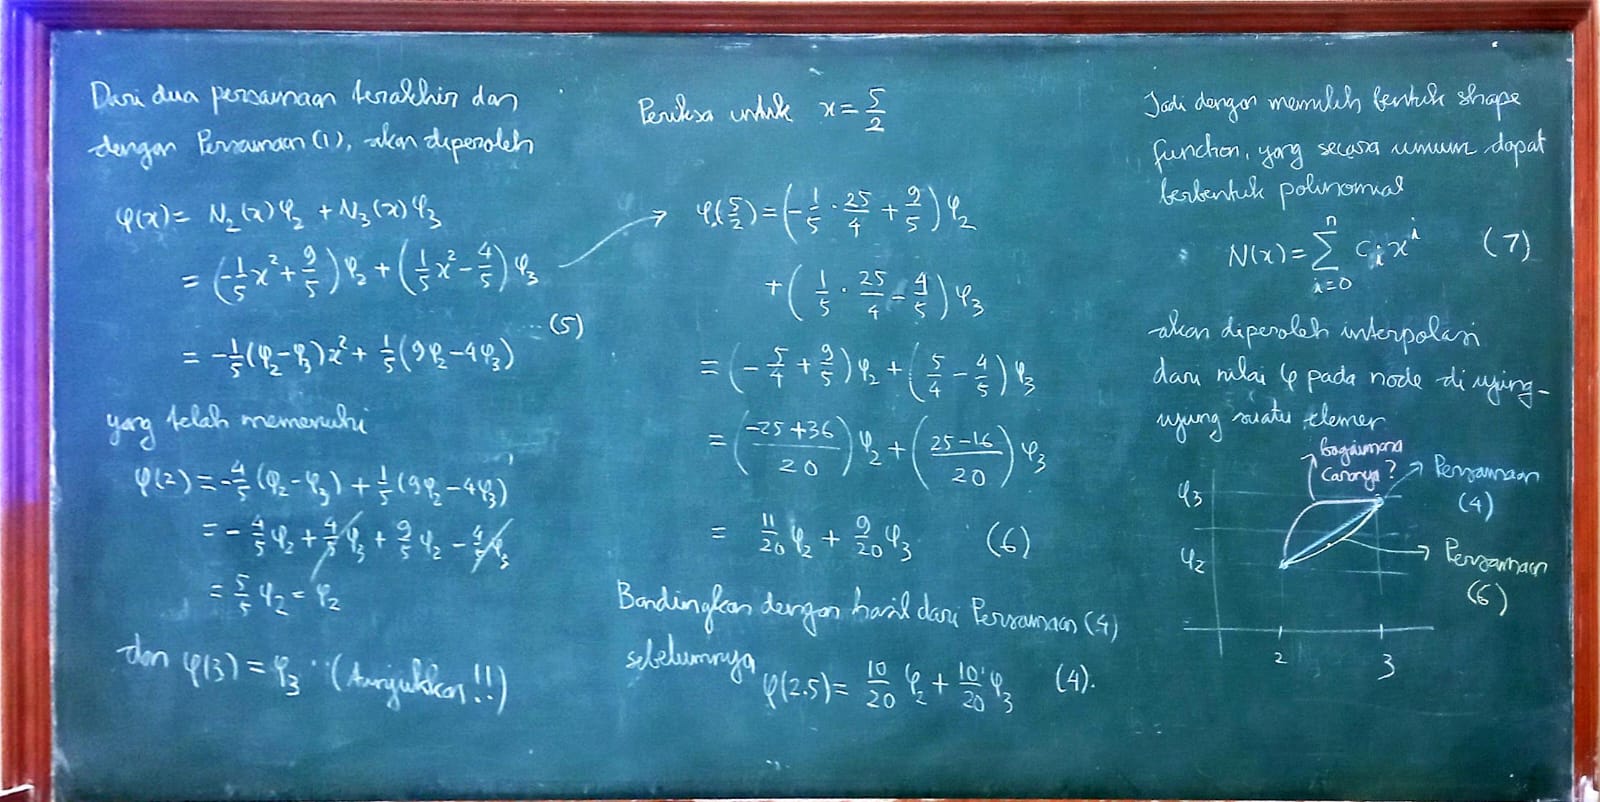 Dari dua persamaan terakhir dan
dengan Persamaan (1), akan diperoleh
φ(x) = N₂(x)φ₂ + N₃(x)φ₃
= (-1/5 x² + 9/5) φ₂ + (1/5 x² - 4/5) φ₃
... (5)
= -1/5 (φ₂-φ₃)x² + 1/5 (9φ₂-4φ₃)
yang telah memenuhi
φ(2) = -4/5 (φ₂-φ₃) + 1/5 (9φ₂-4φ₃)
= -4/5 φ₂ + 4/5 φ₃ + 9/5 φ₂ - 4/5 φ₃
= 5/5 φ₂ = φ₂
dan φ(3) = φ₃ (tunjukkan!!)
Periksa untuk x = 5/2
φ(5/2) = (-1/5 · 25/4 + 9/5) φ₂
+ (1/5 · 25/4 - 4/5) φ₃
= (-5/4 + 9/5) φ₂ + (5/4 - 4/5) φ₃
= ((-25+36)/20) φ₂ + ((25-16)/20) φ₃
= 11/20 φ₂ + 9/20 φ₃ (6)
Bandingkan dengan hasil dari Persamaan (4)
sebelumnya
φ(2.5) = 10/20 φ₂ + 10/20 φ₃ (4).
Jadi dengan memilih bentuk shape
function, yang secara umum dapat
berbentuk polinomial
N(x) = ∑ᵢ₌₀ⁿ cᵢ xⁱ (7)
akan diperoleh interpolasi
dari nilai φ pada node di ujung-
ujung suatu elemen
bagaimana
caranya?
Persamaan
(4)
φ₃
φ₂
Persamaan
(6)
2 3